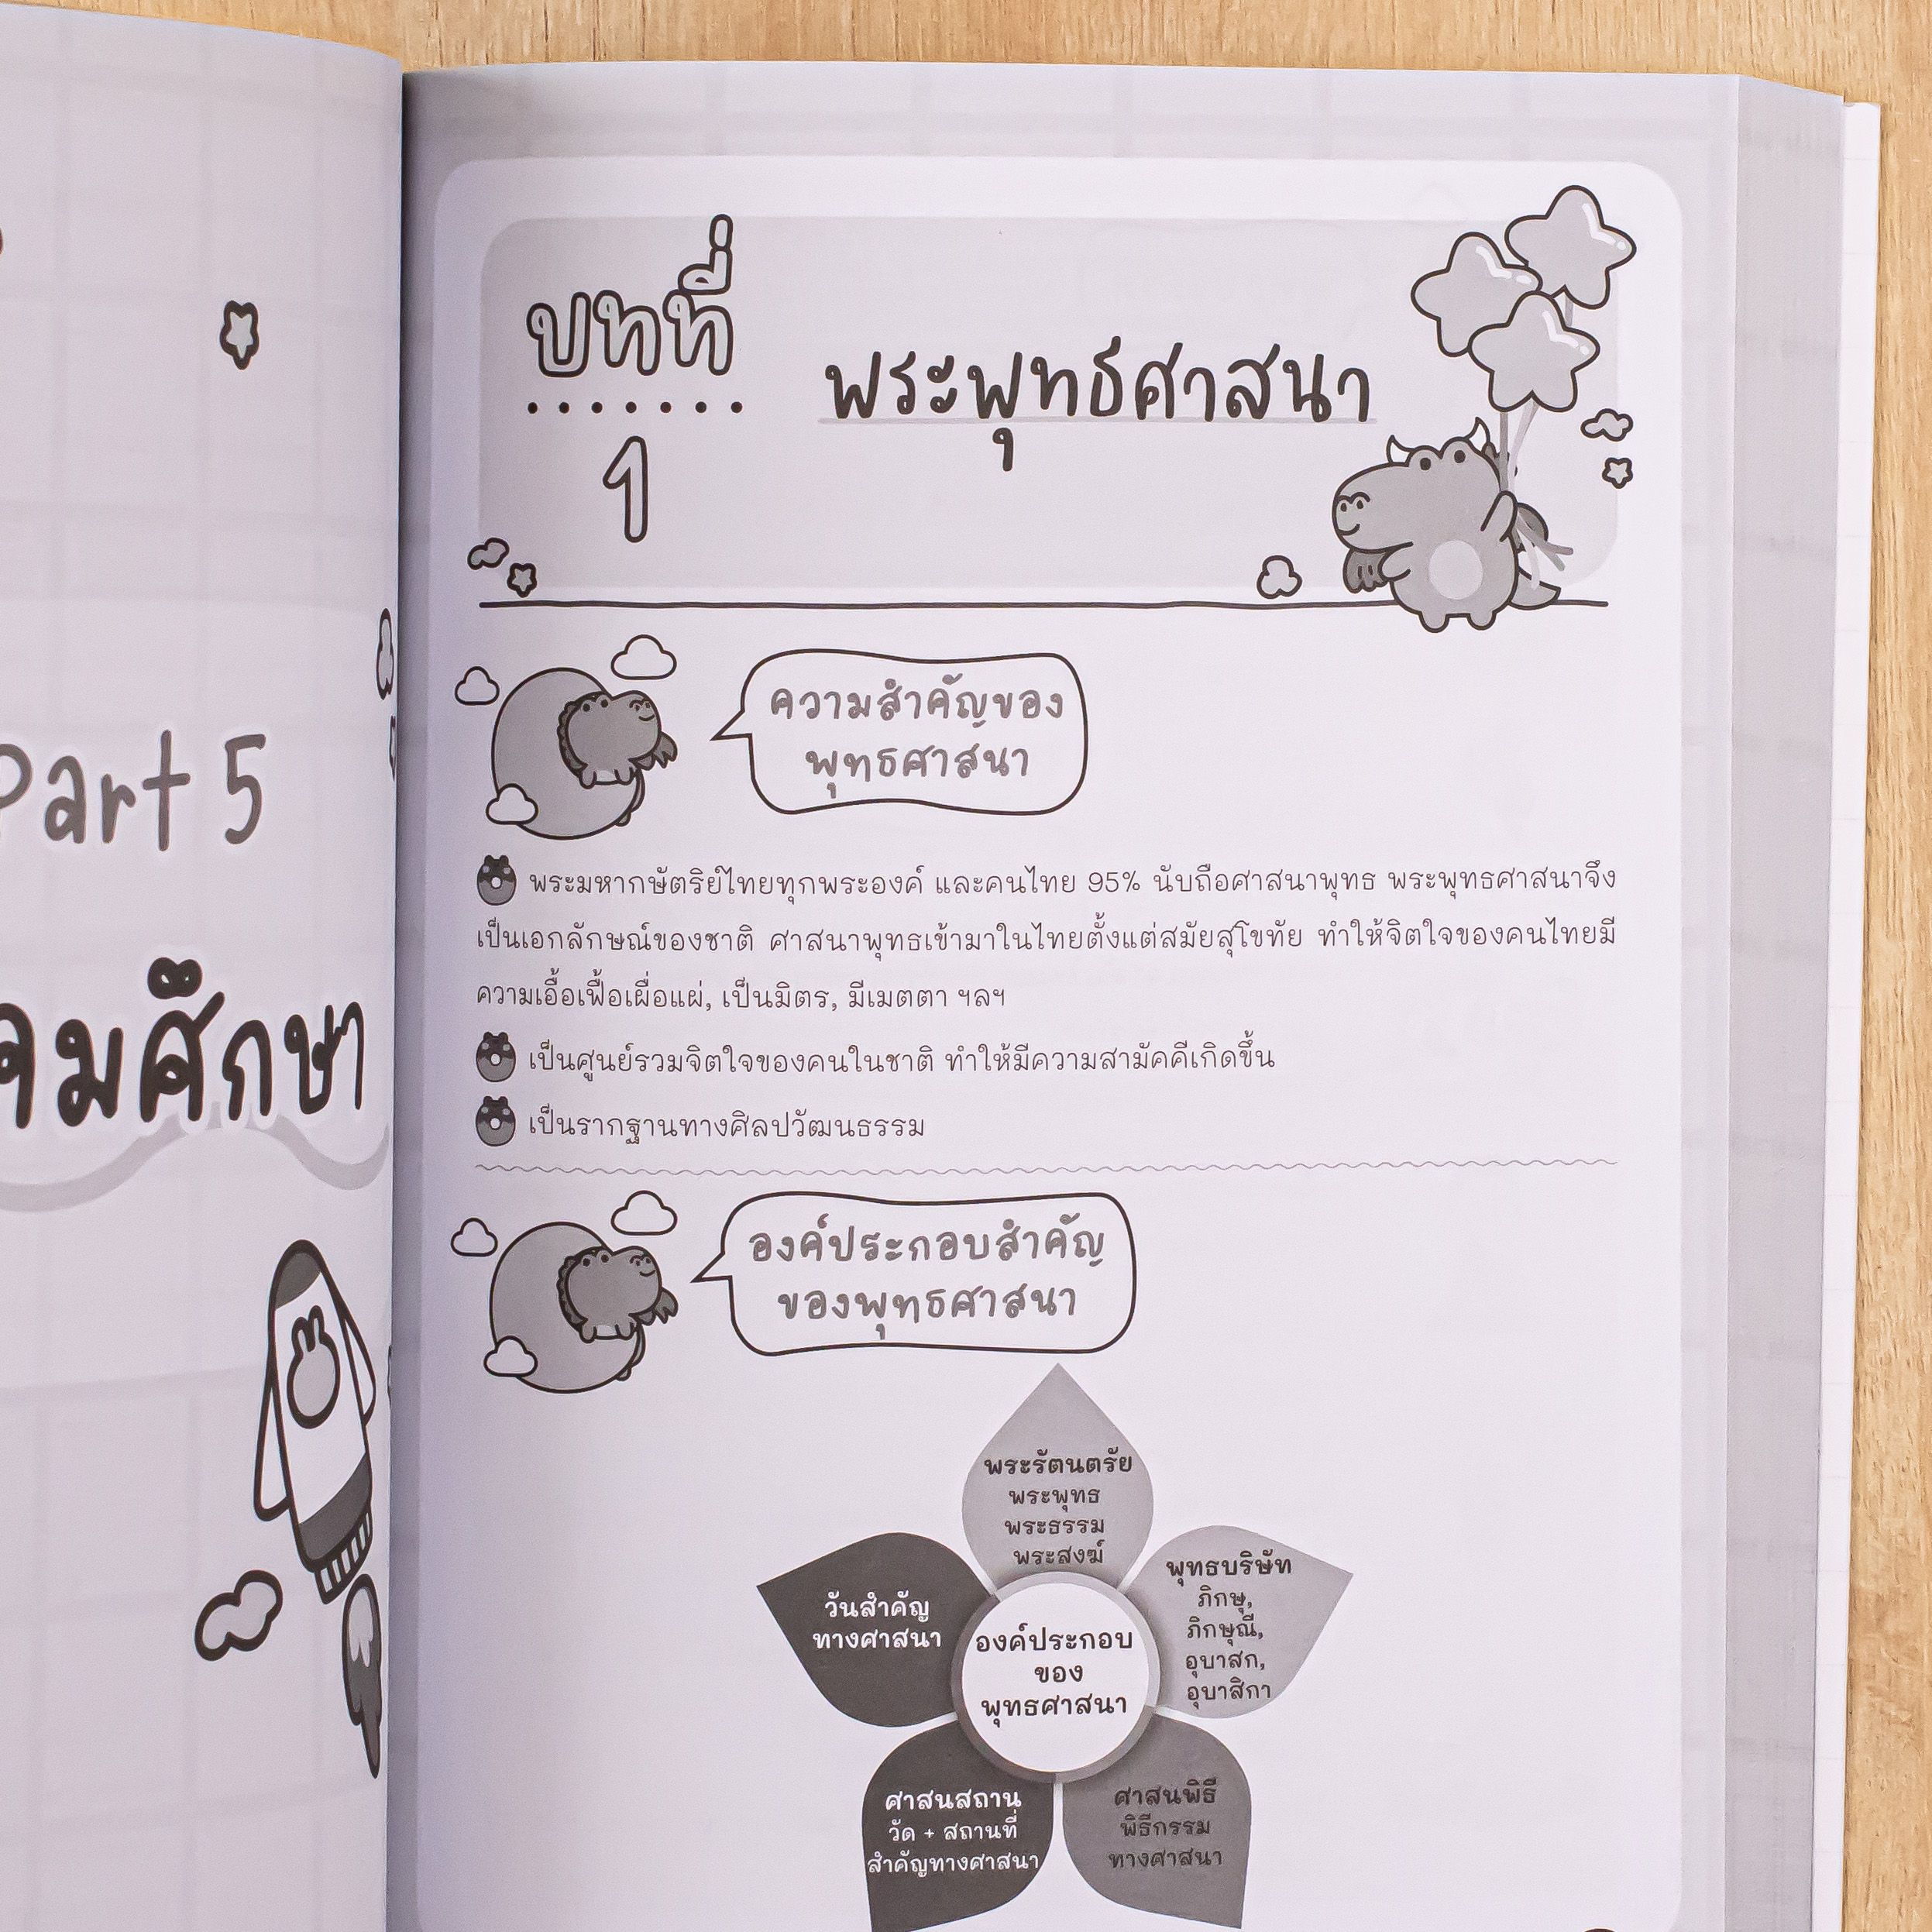 Part 5
คมศึกษา
บทที่
1
พระพุทธศาสนา
ความสำคัญของ
พุทธศาสนา
พระมหากษัตริย์ไทยทุกพระองค์ และคนไทย 95% นับถือศาสนาพุทธ พระพุทธศาสนาจึง
เป็นเอกลักษณ์ของชาติ ศาสนาพุทธเข้ามาในไทยตั้งแต่สมัยสุโขทัย ทำให้จิตใจของคนไทยมี
ความเอื้อเฟื้อเผื่อแผ่, เป็นมิตร, มีเมตตา ฯลฯ
เป็นศูนย์รวมจิตใจของคนในชาติ ทำให้มีความสามัคคีเกิดขึ้น
เป็นรากฐานทางศิลปวัฒนธรรม
องค์ประกอบสำคัญ
ของพุทธศาสนา
พระรัตนตรัย
พระพุทธ
พระธรรม
พระสงฆ์
พุทธบริษัท
ภิกษุ,
ภิกษุณี,
อุบาสก,
อุบาสิกา
วันสำคัญ
ทางศาสนา
องค์ประกอบ
ของ
พุทธศาสนา
ศาสนสถาน
วัด + สถานที่
สำคัญทางศาสนา
ศาสนพิธี
พิธีกรรม
ทางศาสนา